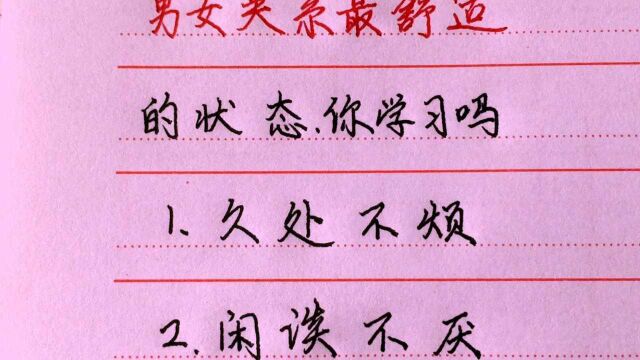 男女关系最舒适
的状态、你学习吗
1、久处不烦
2、闲谈不厌